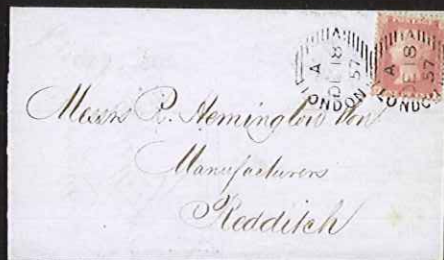 A
A
DE 18
57
LONDON
A
A
DE 18
57
LONDON
Messrs R. Hemington & Son
Manufacturers
Redditch